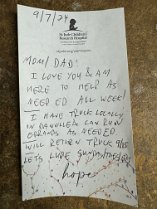 9/7/24
St. Jude Children's
Research Hospital
MOM/DAD:
I LOVE YOU & AM
HERE TO HELP AS
NEEDED ALL WEEK!
I HAVE TRUCK LOCALLY
IN CAN RUN
ERRANDS AS NEEDED
WILL RETURN TRUCK
LETS
hope